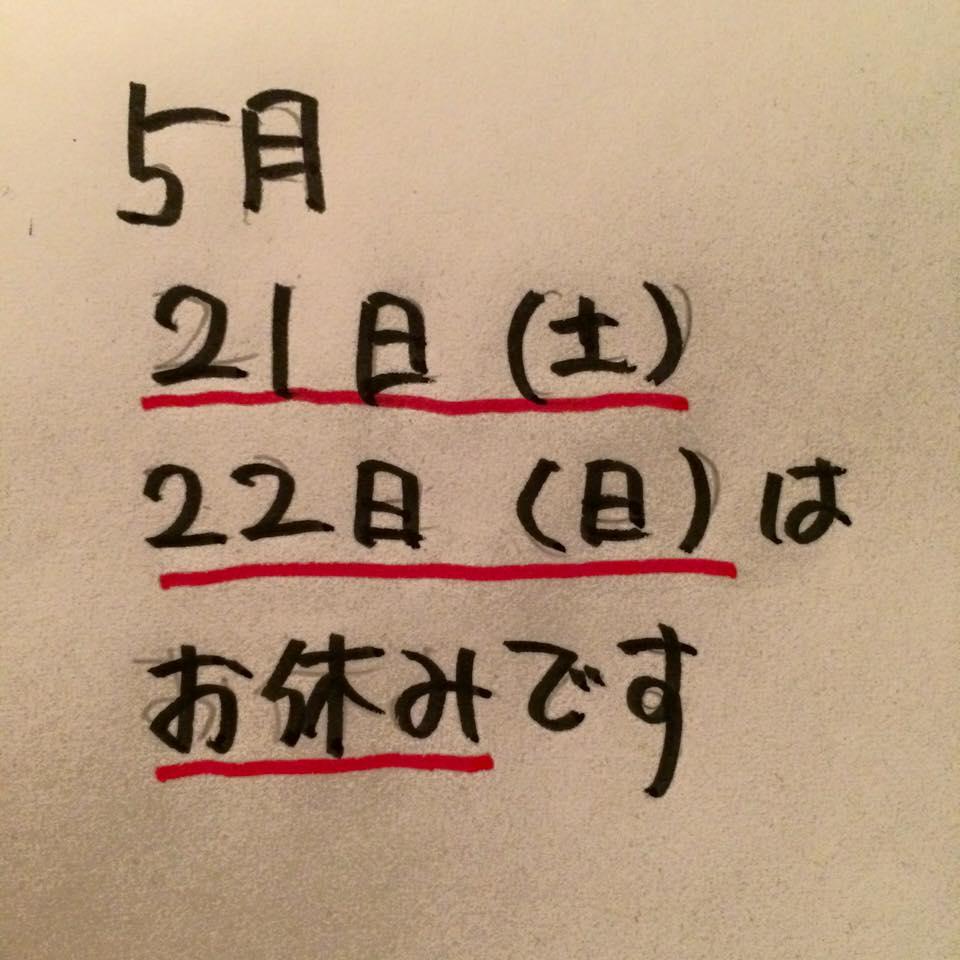 5月
21日(土)
22日(日)は
お休みです